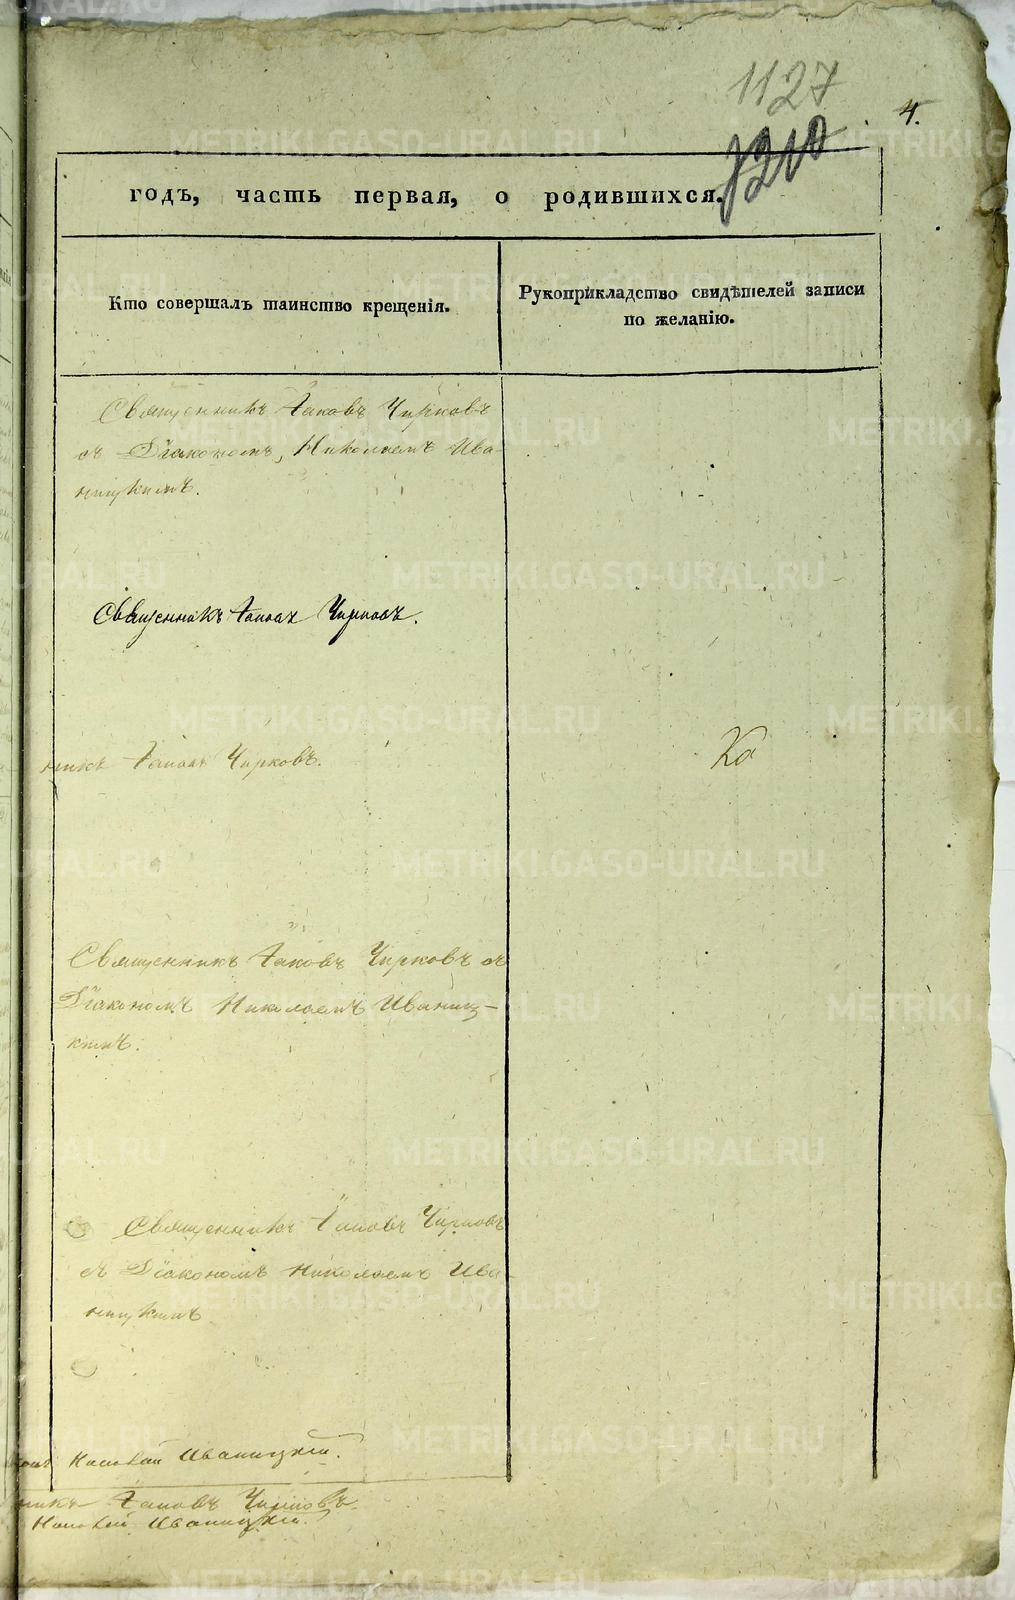 1127
1210
4.
годъ, часть первая, о родившихся.
Кто совершалъ таинство крещенія.
Рукоприкладство свидѣтелей записи
по желанію.
Священникъ Іаковъ Чирковъ
съ Діакономъ, Николаемъ Ива-
ницкимъ.
Священникъ Іаковъ Чирковъ.
никъ Іаковъ Чирковъ.
Ко
Священникъ Іаковъ Чирковъ съ
Діакономъ Николаемъ Иваниц-
кимъ.
Священникъ Іаковъ Чирковъ
съ Діакономъ Николаемъ Ива-
ницкимъ
Николай Иваницкій.
никъ Іаковъ Чирковъ.
Николай Иваницкій.
METRIKI.GASO-URAL.RU